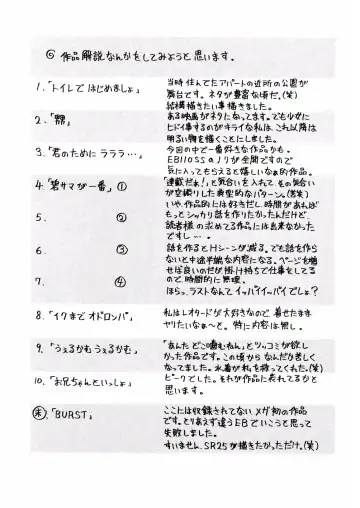 ◎ 作品解説なんかをしてみようと思います。
1.「トイレではじめましょ」
当時住んでたアパートの近所の公園が
舞台です。ネタが豊富な頃だ。(笑)
結構描きたい事描きました。
2.「
ある映画がネタになってます。でも少女に
ヒドイ事するのがキライな私は、これ以降は
明るい物を描くことにしました。
3.「君のために ラララ…」
今回の中で一番好きな作品かも。
EB110SSのノリが全開ですので
気に入ってもらえると嬉しいなぁ的作品。
4.「碧サマが一番」①
「連載だぁ!」と気合いを入れて、その気合い
が空振りした典型的なパターン。(苦笑)
5. ②
いや、作品的には好きだし、時間があれば
もっとシッカリ話を作りたかったんだけど、
読者様の求めてる作品には出来なかった
ですし…。
6. ③
話を作るとHシーンが減る。でも話を作ら
ないと中途半端な内容になる。ページを増
7. ④
せば良いのだが掛け持ちで仕事をしてる
ので時間的に無理。
ほらっ、ラストなんてイッパイイッパイでしょ?
8.「イクまでオドロンパ」
私はレオタードが大好きなので着せたまま
ヤりたいなぁ〜と。特に内容は無し。
9.「うぇるかむうぇるかむ」
「あんたどこ噛むねん」とツッコミが欲し
かった作品です。この頃からなんだか苦しく
なってました。水着が私を救ってくれた。(笑)
10.「お兄ちゃんといっしょ」
ピークでした。それが作品に表れてるかと
思います。
「BURST」
ここには収録されてないメガ初の作品
です。とりあえず違うEBでいこうと思って
失敗しました。
すいません。SR25が描きたかっただけ。(笑)